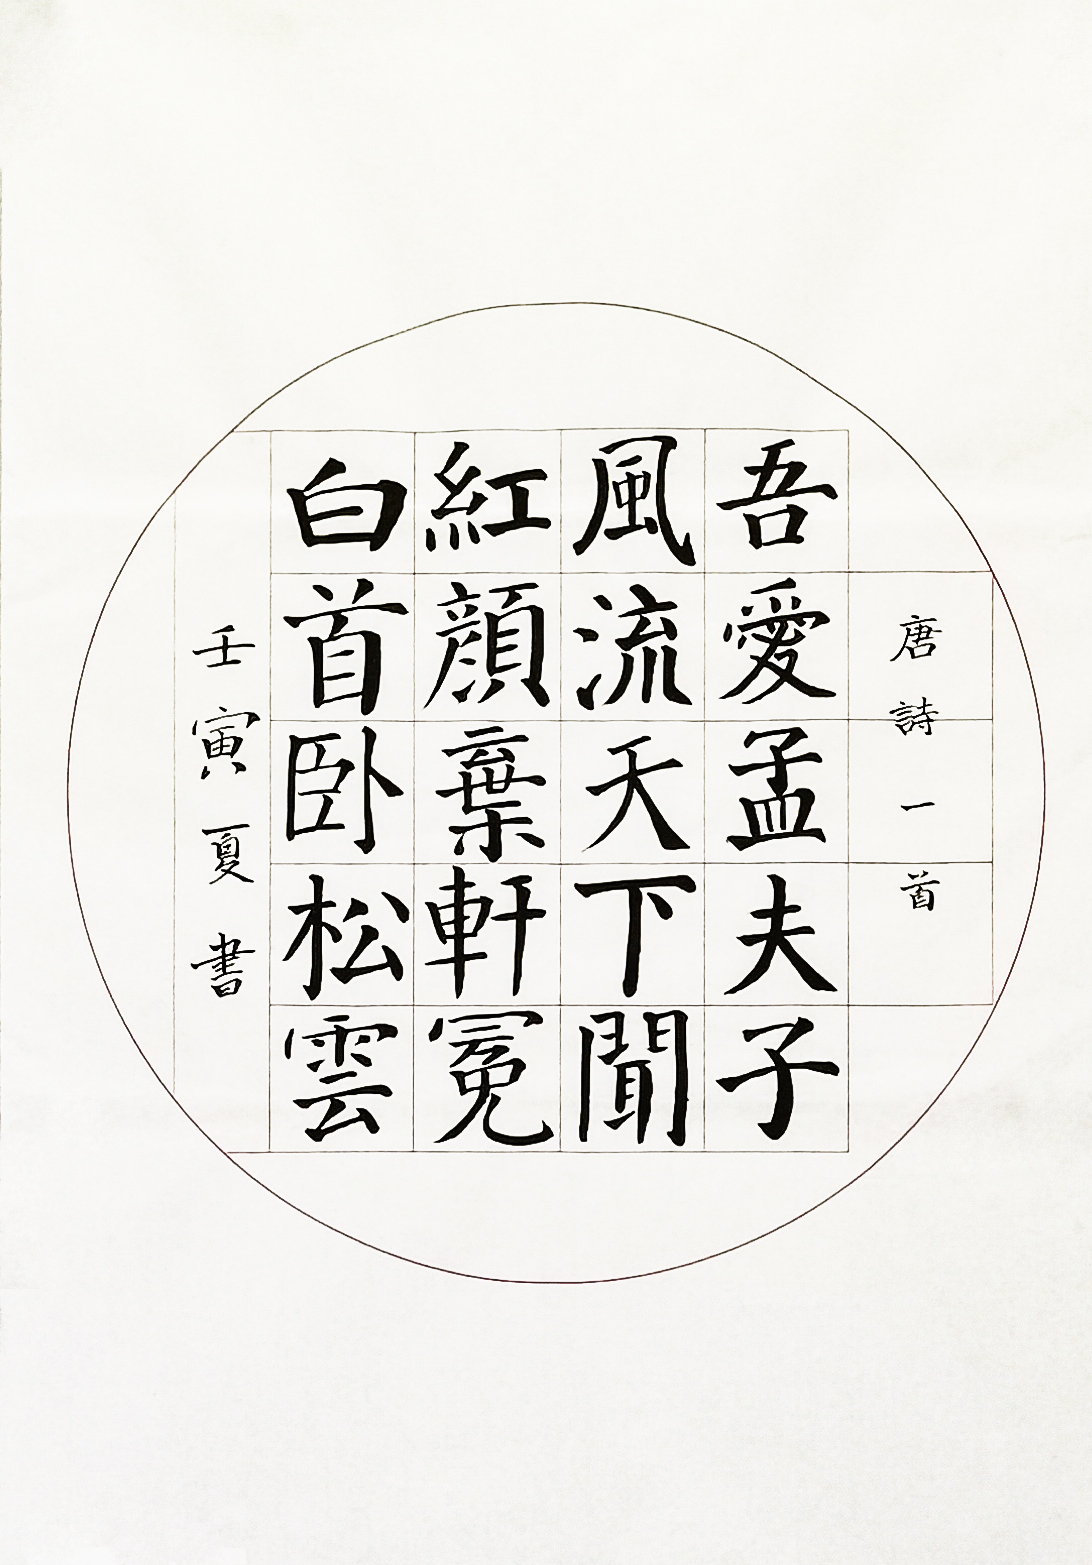 唐詩一首
吾愛孟夫子
風流天下聞
紅顔棄軒冕
白首卧松雲
壬寅夏書